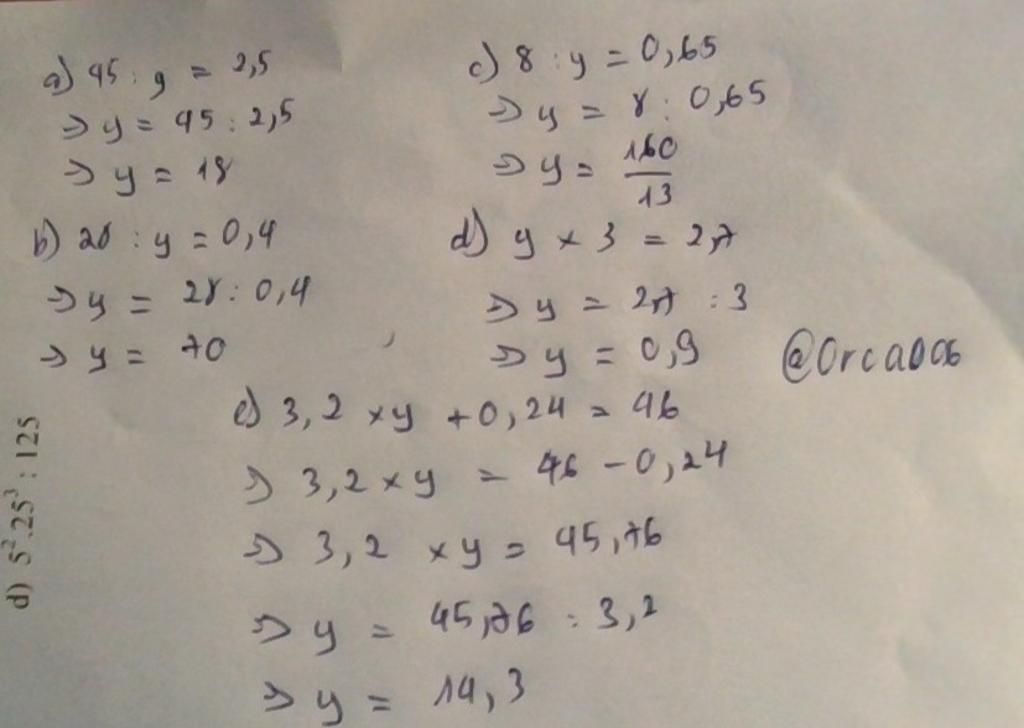 a) 45 : y = 2,5
=> y = 45 : 2,5
=> y = 18
b) 28 : y = 0,4
=> y = 28 : 0,4
=> y = 70
c) 8 : y = 0,65
=> y = 8 : 0,65
=> y = 160/13
d) y × 3 = 2,7
=> y = 2,7 : 3
=> y = 0,9
@Orca006
e) 3,2 × y + 0,24 = 46
=> 3,2 × y = 46 - 0,24
=> 3,2 × y = 45,76
=> y = 45,76 : 3,2
=> y = 14,3
d) 5².25³ : 125